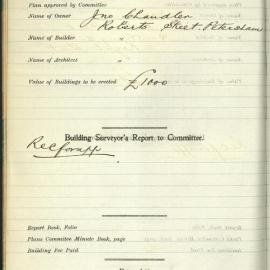 Plan approved by Committee
Name of Owner Jno Chandler
Roberts Street Petersham
Name of Builder "
Name of Architect "
Value of Buildings to be erected £1000
Building Surveyor's Report to Committee.
Report Book, Folio
Plans Committee Minute Book, page
Building Fee Paid